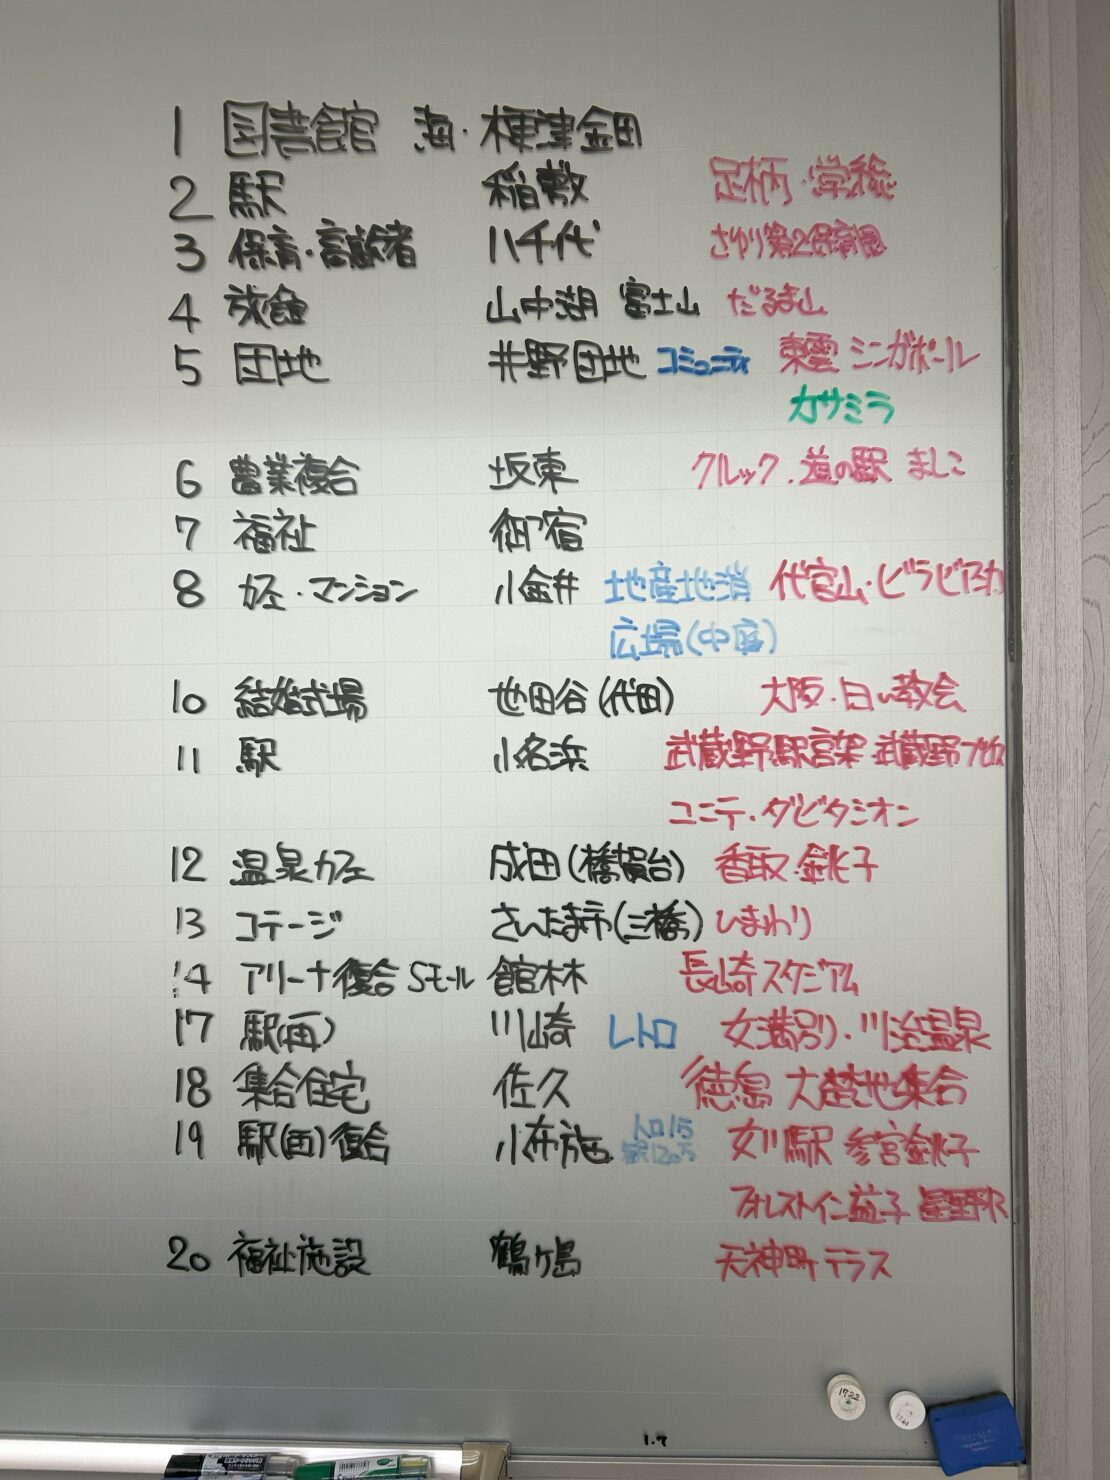 1 図書館 海・木更津金田
2 駅 稲敷 足柄・学校
3 保育・高齢者 八千代 さゆり第2保育園
4 旅館 山中湖 富士山 だるま山
5 団地 井野団地 コミュニティ 東雲 シンガポール
カサミラ
6 農業複合 坂東 クルック.道の駅 ましこ
7 福祉 御宿
8 女王・マンション 小金井 地産地消 代官山・ビラビアンカ
広場(中庭)
10 結婚式場 世田谷(代田) 大阪・白い教会
11 駅 小名浜 武蔵野駅高架 武蔵野プレイス
ユニテ・ダビタシオン
12 温泉カフェ 成田(橋賀台) 香取・銚子
13 コテージ さいたま市(三橋) ひまわり
14 アリーナ複合 Sモール 館林 長崎スタジアム
17 駅(西) 川崎 レトロ 女満別・川治温泉
18 集合住宅 佐久 徳島 大楚地集合
19 駅(西)複合 小布施 女川駅 参宮銚子
フォレストイン益子 星野駅
20 福祉施設 鶴ヶ島 天神町テラス
1722
1.7